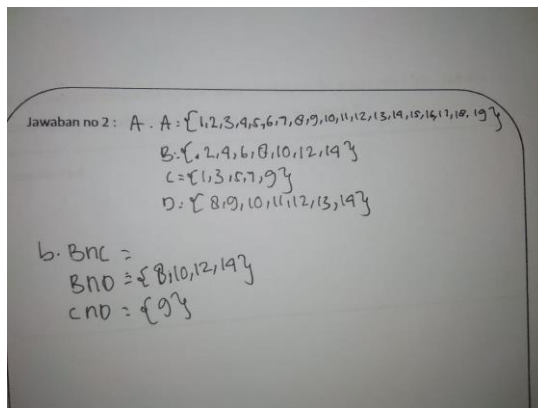 Jawaban no 2 : A. A = {1,2,3,4,5,6,7,8,9,10,11,12,13,14,15,16,17,18,19}
B = {2,4,6,8,10,12,14}
C = {1,3,5,7,9}
D = {8,9,10,11,12,13,14}
b. B∩C =
B∩D = {8,10,12,14}
C∩D = {9}